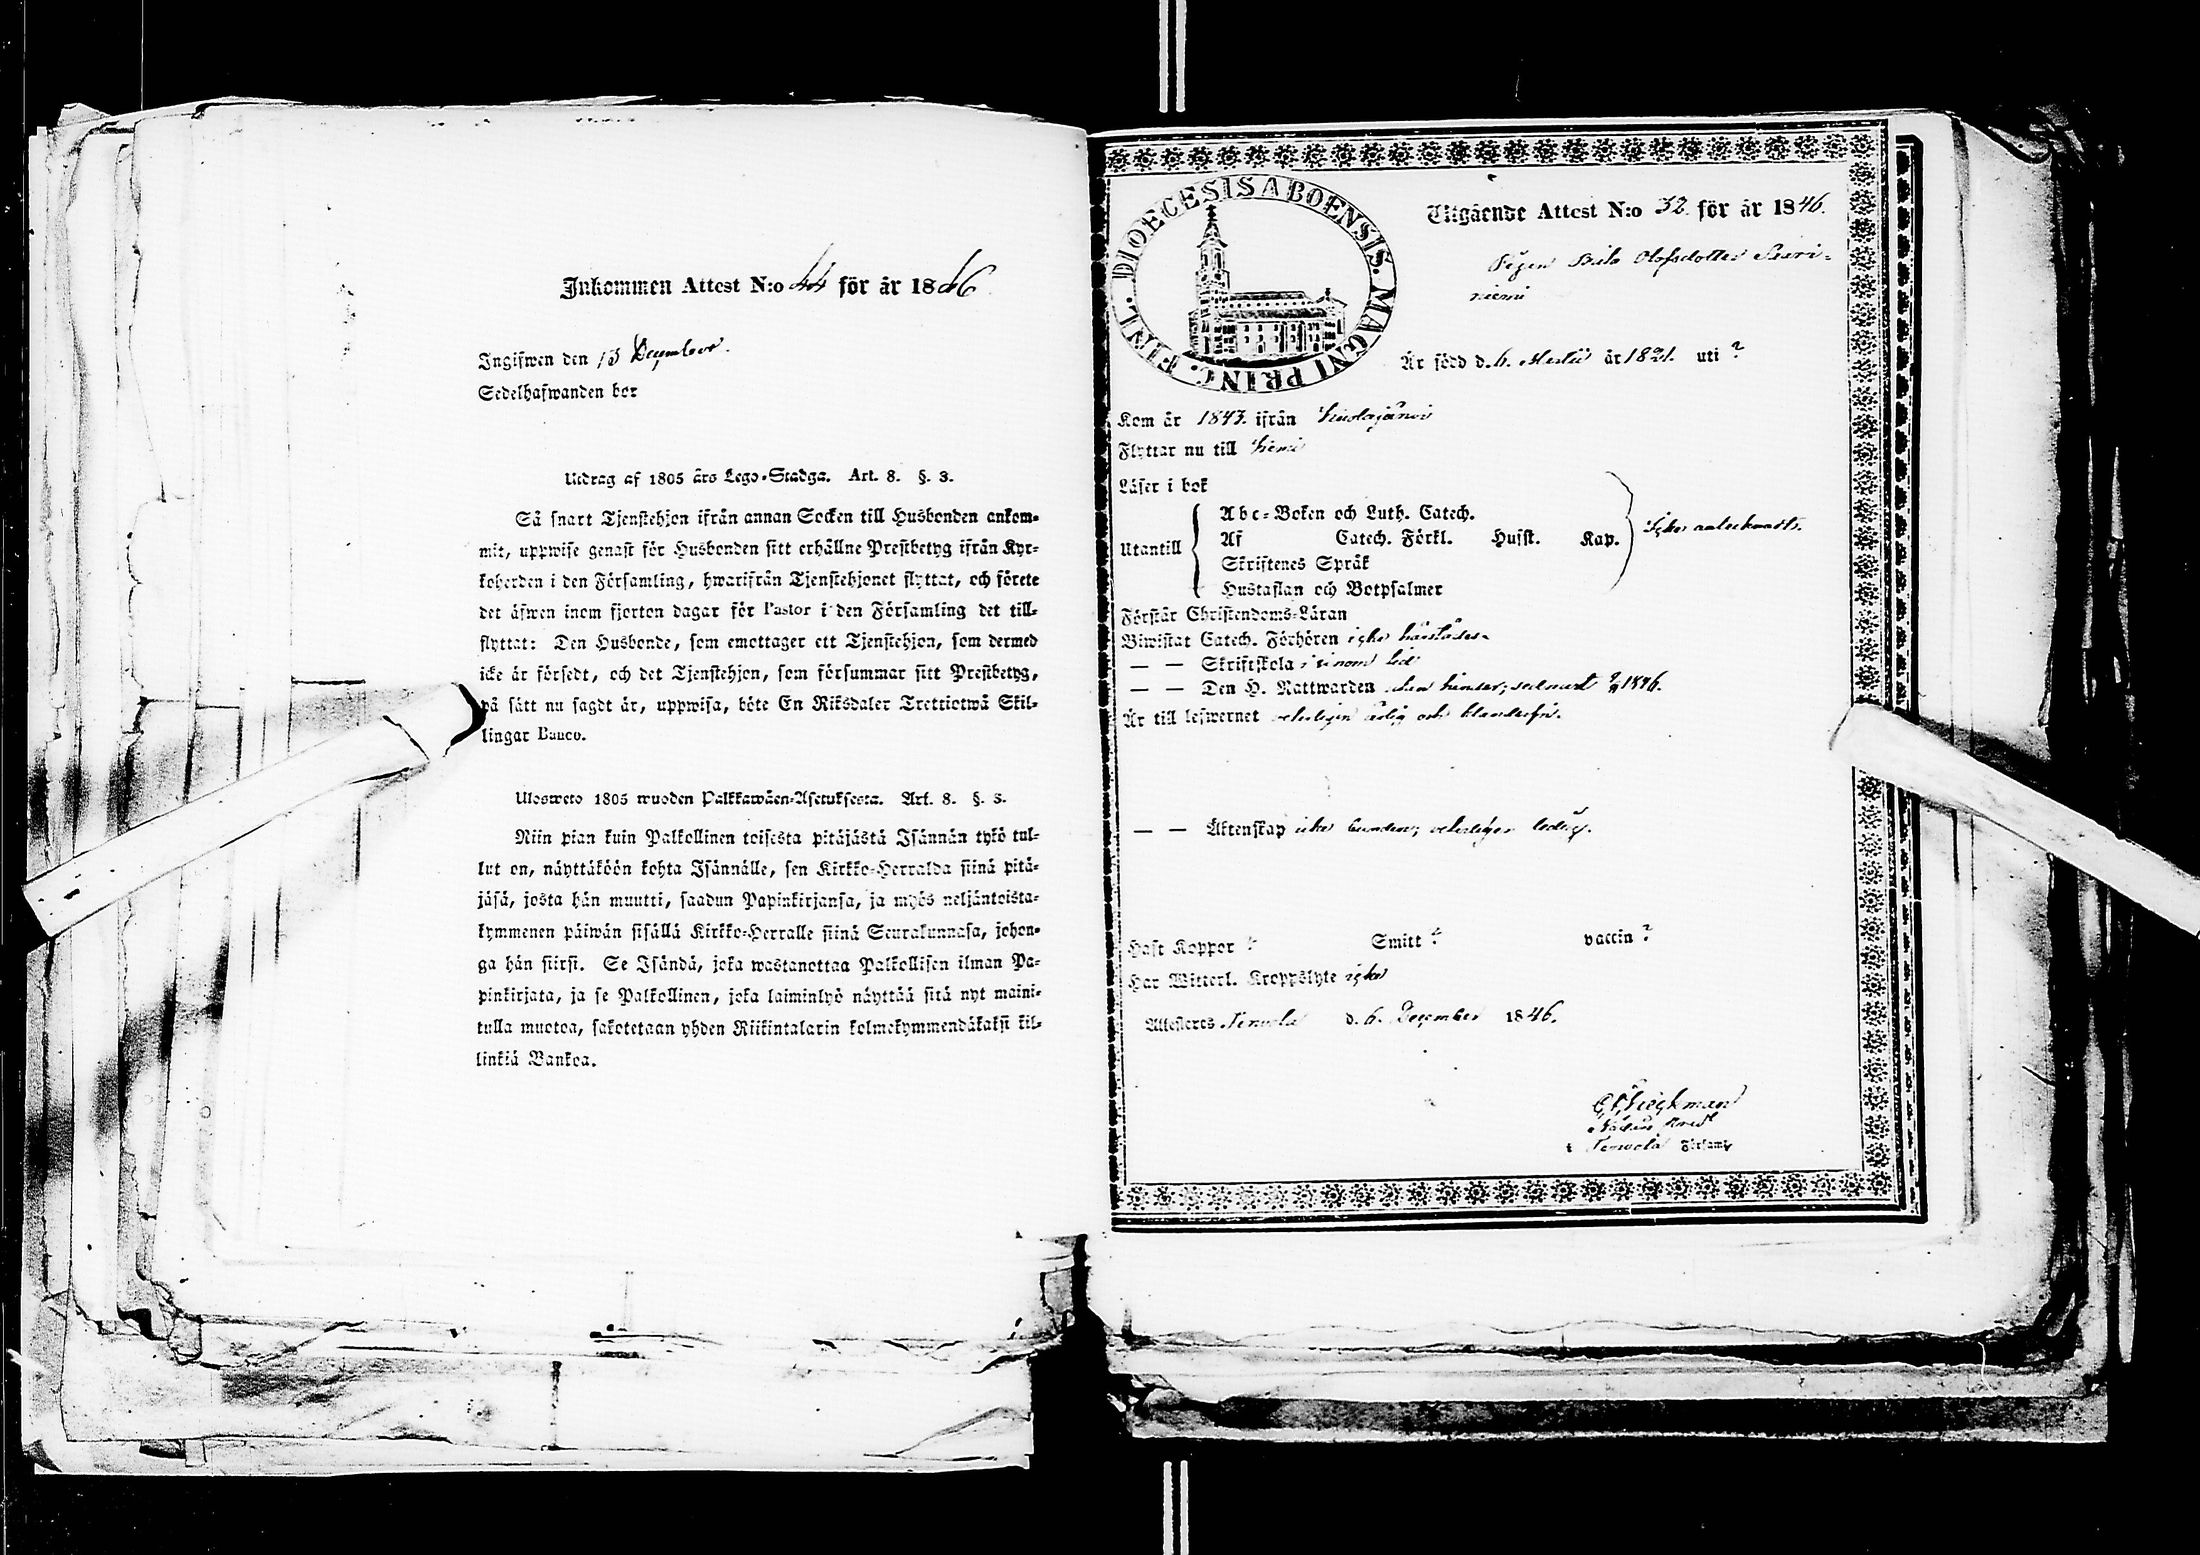 Inkommen Attest N:o 44 för år 1846
Ingifwen den 13 December.
Sedelhafwanden bor
Utdrag af 1805 års Lego-Stadga. Art. 8. §. 3.
Så snart Tjenstehjon ifrån annan Socken till Husbonden ankom-
mit, uppwise genast för Husbonden sitt erhållne Prestbetyg ifrån Kyr-
koherden i den Församling, hwarifrån Tjenstehjonet flyttat, och förete
det äfwen inom fjorton dagar för Pastor i den Församling det till-
flyttat: Den Husbonde, som emottager ett Tjenstehjon, som dermed
icke är försedt, och det Tjenstehjon, som försummar sitt Prestbetyg,
på sätt nu sagdt är, uppwisa, böte En Riksdaler Trettiotwå Skil-
lingar Banco.
Ulosweto 1805 wuoden Palkkawäen-Asetuksesta. Art. 8. §. 3.
Niin pian kuin Palkollinen toisesta pitäjästä Isännän tykö tul-
lut on, näyttäköön kohta Isännälle, sen Kirkko-Herralda siinä pitä-
jäsä, josta hän muutti, saadun Papinkirjansa, ja myös neljäntoista-
kymmenen päiwän sisällä Kirkko-Herralle siinä Seurakunnasa, johon-
ga hän siirsi. Se Isändä, joka wastanottaa Palkollisen ilman Pa-
pinkirjata, ja se Palkollinen, joka laiminlyö näyttää sitä nyt maini-
tulla muotoa, sakotetaan yhden Riikintalarin kolmekymmendäkaksi kil-
linkiä Bankoa.
DIOECESIS ABOENSIS. MAGNI PRINC. FINL.
Utgående Attest N:o 32 för år 1846.
Pigan Brita Olofsdotter Saari-
niemi
Är född d. 6. Martii år 1821. uti ?
Kom år 1843. ifrån Kuolajärvi
Flyttar nu till Kemi
Läser i bok
Utantill
Abc-Boken och Luth. Catech.
Af Catech. Förkl. Husst. Kap.
Skriftenes Språk
Hustaflan och Botpsalmer
Förstår Christendoms-Läran
Biwistat Catech. Förhören icke härstädes
— — Skriftskola
— — Den H. Nattwarden utan hinder, sednast 1846.
Är till lefwernet veterligen ärlig och klanderfri.
— — Äktenskap icke bunden; veterligen ledig.
Haft Koppor ? Smitt ? vaccin ?
Har Witterl. Kroppslyte icke
Attesteras Terwola d. 6. December 1846.
i Terwola Församl.